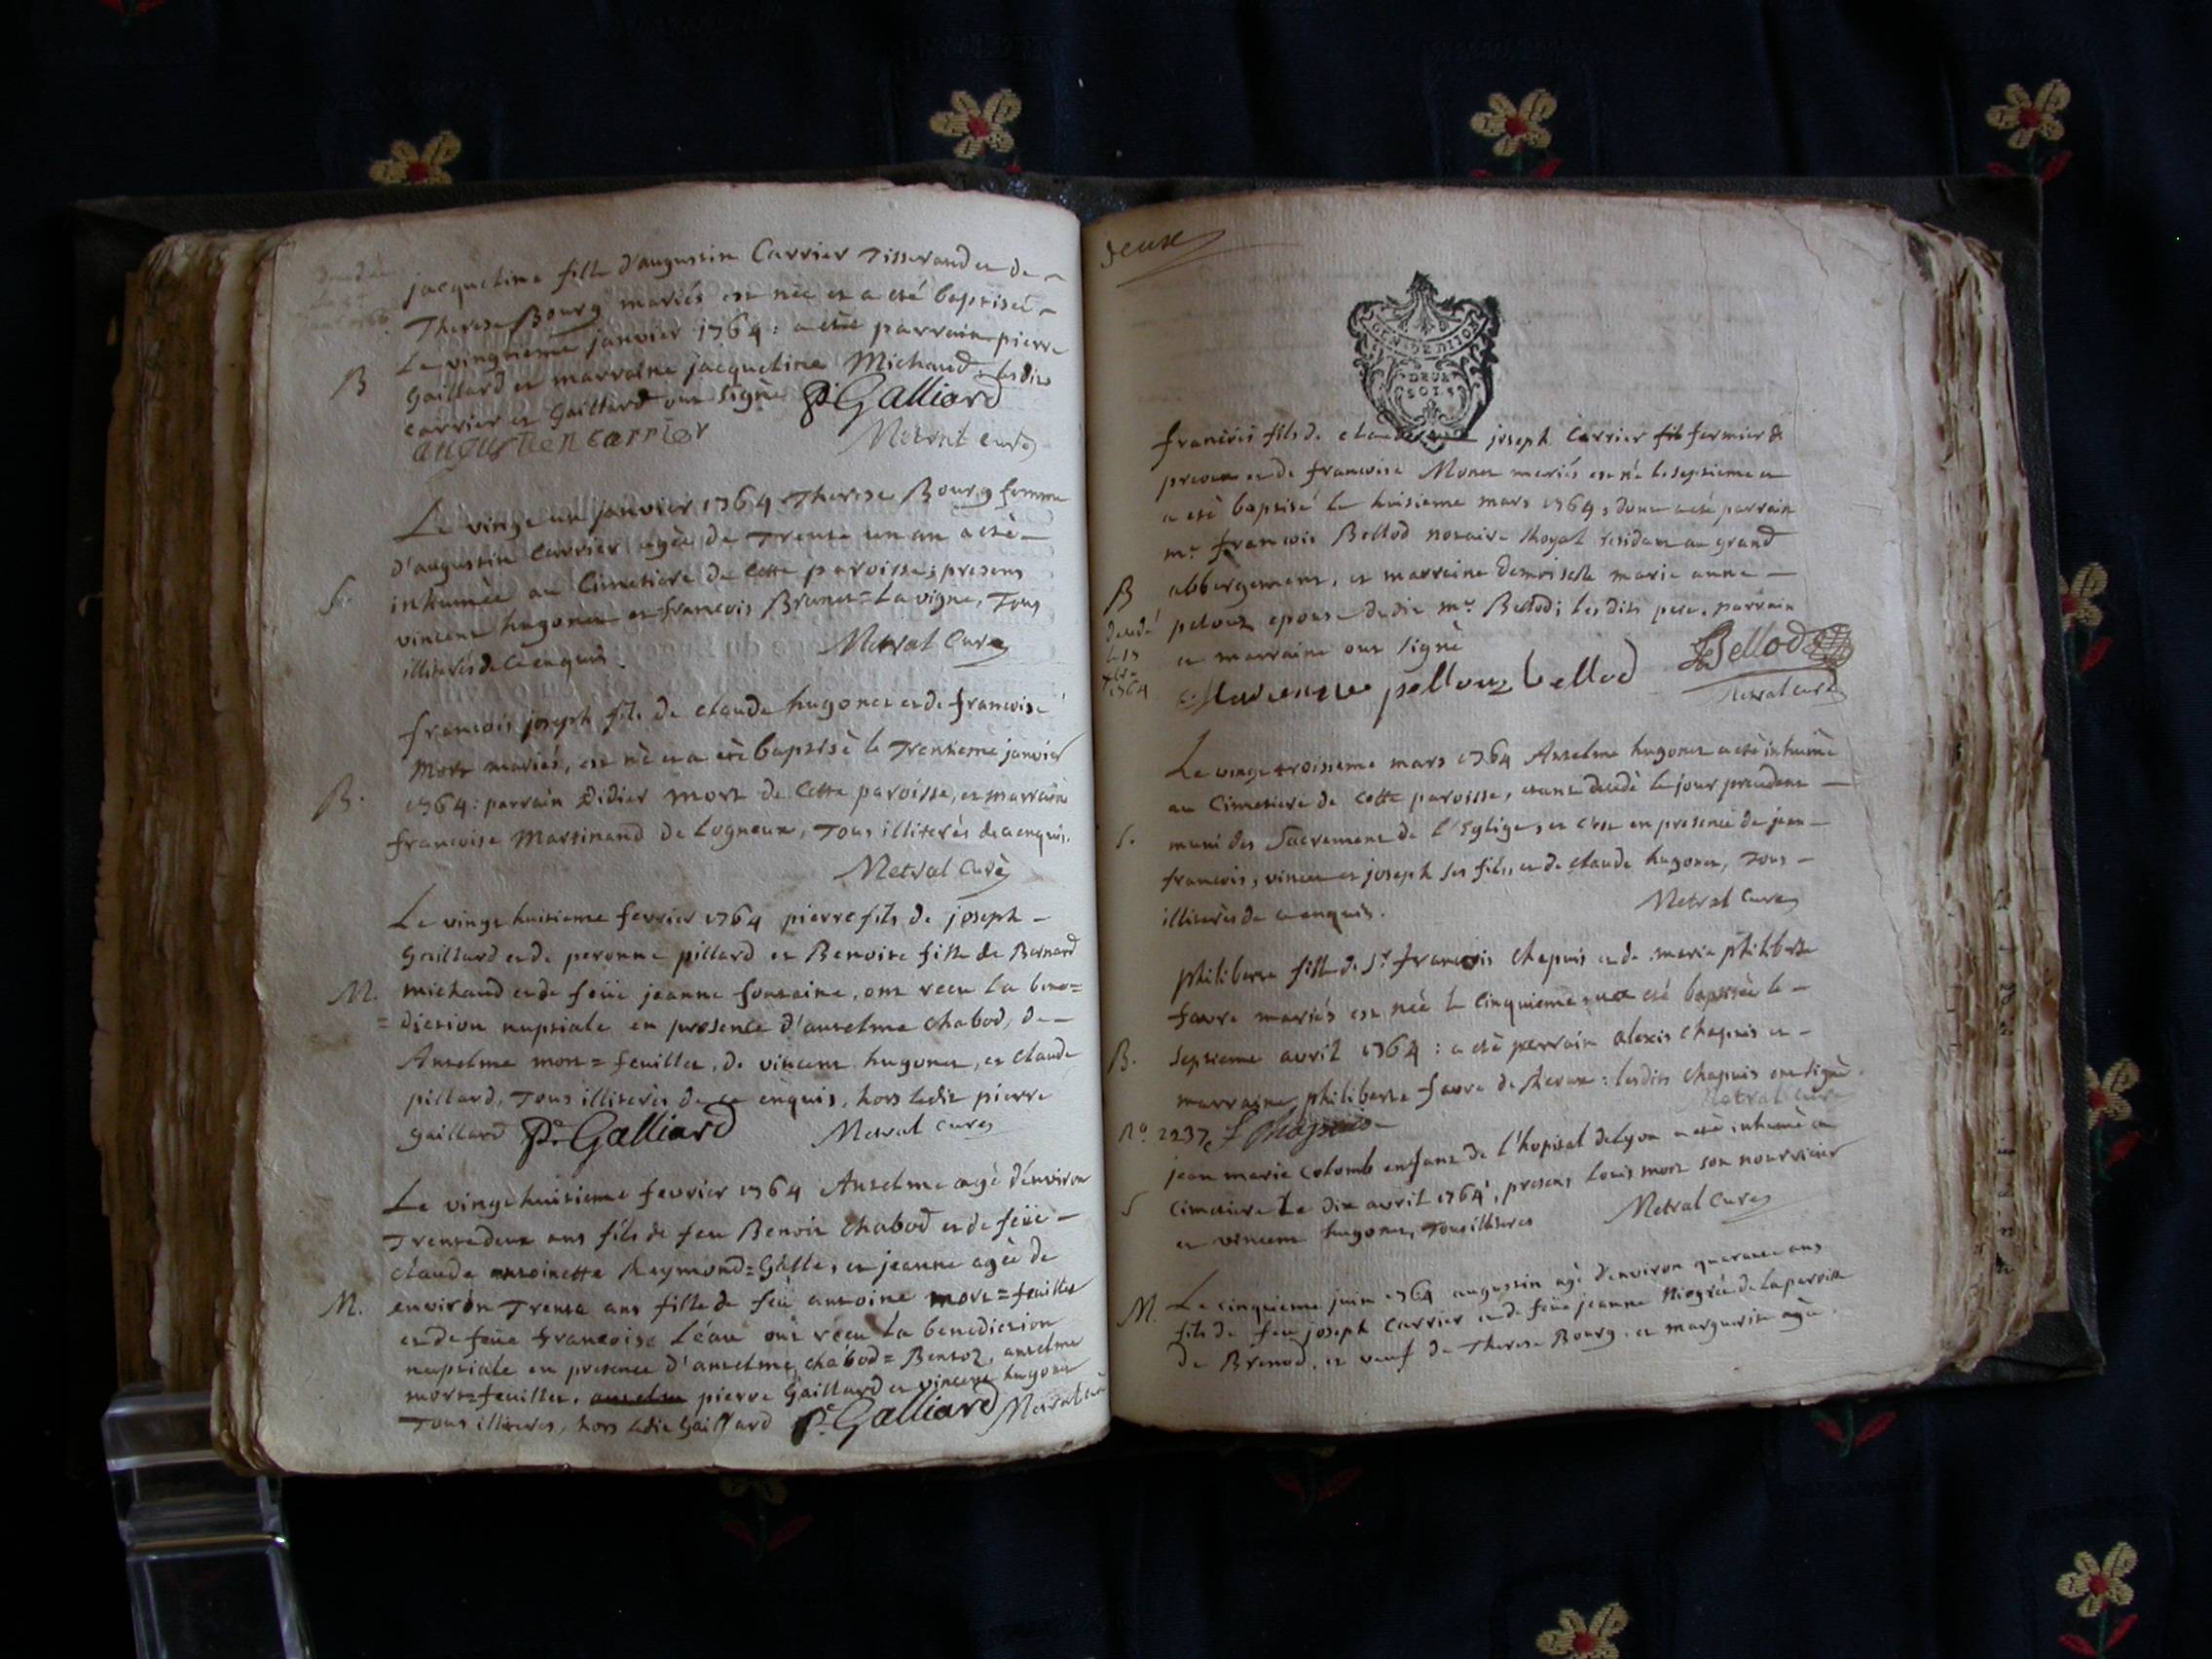 jacqueline fille d'augustin Carrier Tisserand et de
Therese Bourg mariés est née et a eté baptisée
Le vingtieme janvier 1764 : a eté parrain pierre
B
Gaillard et marraine jacqueline Michaud, lesdits
carrier et Gaillard ont signé P. Galliard
augustien carrier
Metral curé
Le vingt un janvier 1764 Therese Bourg femme
d'augustin Carrier agée de Trente un an a eté
S.
inhumée au Cimetiere de cette paroisse; presens
vincent hugonet et francois Brunet=La vigne, Tous
illiterés de ce enquis.
Metral Curé
francois joseph fils de claude hugonet et de francoise
Mort mariés, est né et a eté baptisé le Trentieme janvier
B.
1764 : parrain Didier mort de Cette paroisse, et marraine
francoise Martinand de Logneux, Tous illiterés de ce enquis.
Metral Curé
Le vingt huitieme fevrier 1764 pierre fils de joseph
Gaillard et de peronne pillard et Benoite fille de Bernard
M.
michaud et de feüe jeanne fontaine, ont recu la bene=
=diction nuptiale en presence d'anselme chabod, de
Anselme mort=feuillet, de vincent hugonet, et claude
pillard, Tous illiterés de ce enquis, hors ledit pierre
Gaillard P. Galliard
Metral curé
Le vingt huitieme fevrier 1764 Anselme agé d'environ
Trente deux ans fils de feu Benoit chabod et de feüe
claude antoinette Reymond=Galle, et jeanne agée de
M.
environ Trente ans fille de feu antoine mort=feuillet
et de feüe francoise Léau ont recu la benediction
nuptiale en presence d'anselme chabod=Bentoz, anselme
mort=feuillet, pierre Gaillard et vincent hugonet
Tous illiterés, hors ledit Gaillard P. Galliard Metral curé
deux
GEN. DE DIJON
DEUX
SOLS
francois fils de claude joseph Carrier fermier de
et de francoise Monet mariés est né le septieme et
a eté baptisé le huitieme mars 1764, dont a eté parrain
mr francois Bellod notaire Royal residant au grand
B
abbergement, et marraine demoiselle marie anne
decedé
le 15
7bre
1764
pelouz epouse dudit mr Bellod; les dits pere, parrain
et marraine ont signé
pellouz bellod
Bellod
Metral Curé
Le vingt troisieme mars 1764 Anselme hugonet a eté inhumé
au Cimetiere de cette paroisse, etant decedé le jour precedent
S.
muni des Sacremens de l'Eglise, et c'est en presence de jean
francois, vincent et joseph ses fils, et de claude hugonet, Tous
illiterés de ce enquis.
Metral Curé
philiberte fille de Sr francois Chapuis et de marie philiberte
favre mariés est née le cinquieme, et a eté baptisée le
B.
septieme avril 1764 : a eté parrain alexis chapuis et
marraine philiberte favre : lesdits chapuis ont signé.
Metral curé
No. 2237 f Chapuis
jean marie Colomb enfant de l'hopital de Lyon a eté inhumé au
S
Cimetiere Le dix avril 1764, presens Louis mort son nourricier
et vincent hugonet, Tous illiterés
Metral Curé
M.
Le cinquieme juin 1764 augustin agé d'environ quarante ans
fils de feu joseph Carrier et de feüe jeanne Niogret de la paroisse
de Brenod, et veuf de Therese Bourg, et marguerite agée